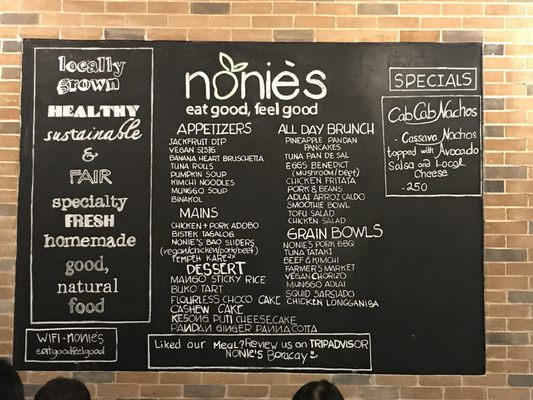 locally
grown
HEALTHY
sustainable
&
FAIR
specialty
FRESH
homemade
good,
natural
food
WIFI - nonie's
eatgoodfeelgood
noniès
eat good, feel good
APPETIZERS
JACKFRUIT DIP
VEGAN SISIG
BANANA HEART BRUSCHETTA
TUNA ROLLS
PUMPKIN SOUP
KIMCHI NOODLES
MUNGGO SOUP
BINAKOL
MAINS
CHICKEN + PORK ADOBO
BISTEK TAGALOG
NONIE'S BAO SLIDERS
(vegan/chicken/pork/beef)
TEMPEH KARE²x
DESSERT
MANGO STICKY RICE
BUKO TART
FLOURLESS CHOCO CAKE
CASHEW CAKE
KESONG PUTI CHEESECAKE
PANDAN GINGER PANNACOTTA
ALL DAY BRUNCH
PINEAPPLE PANDAN
PANCAKES
TUNA PAN DE SAL
EGGS BENEDICT
(mushroom/beef)
CHICKEN FRITATA
PORK & BEANS
ADLAI ARROZ CALDO
SMOOTHIE BOWL
TOFU SALAD
CHICKEN SALAD
GRAIN BOWLS
NONIES PORK BBQ
TUNA TATAKI
BEEF & KIMCHI
FARMER'S MARKET
VEGAN CHORIZO
MUNGGO ADLAI
SQUID SARSIADO
CHICKEN LONGGANISA
SPECIALS
CabCab Nachos
- Cassava Nachos
topped with Avocado
Salsa and Local
Cheese
- 250
Liked our Meal? Review us on TRIPADVISOR
NONIE'S Boracay